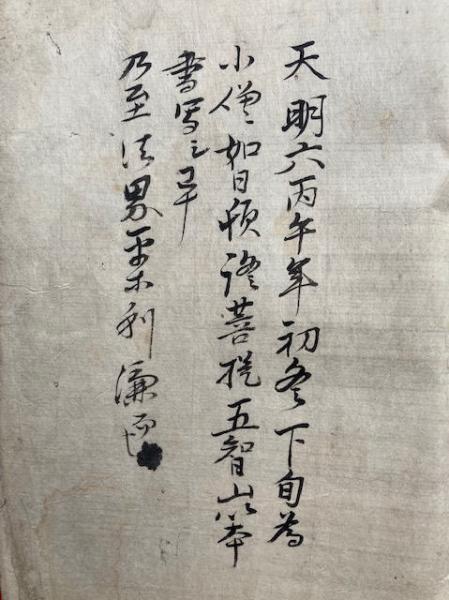 天明六丙午年初冬下旬為
小僧如日頓證菩提五智山以本
書写之畢
乃至法界平等利濟